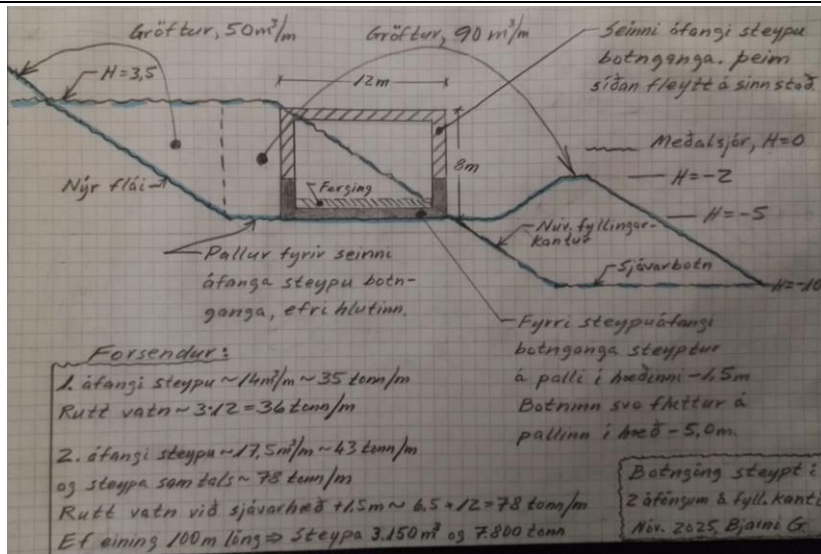 Gröftur, 50m³/m
Gröftur, 90 m³/m
Seinni áfangi steypu
botnganga. Þeim
síðan fleytt á sinn stað.
H=3,5
12m
Meðalsjór, H=0
H=-2
8m
H=-5
Nýr flái
Farging
Núv. fyllingar-
kantur
Sjávarbotn
H=-10
Pallur fyrir seinni
áfanga steypu botn-
ganga, efri hlutinn.
Fyrri steypuáfangi
botnganga steyptur
á palli í hæðinni -1,5m
Botninn svo fluttur á
pallinn í hæð -5,0m.
Forsendur:
1. áfangi steypu ~14m³/m ~35 tonn/m
Rutt vatn ~ 3·12 = 36 tonn/m
2. áfangi steypu ~17,5m³/m ~43 tonn/m
og steypa samtals ~ 78 tonn/m
Rutt vatn við sjávarhæð +1,5m ~ 6,5 * 12 = 78 tonn/m
Ef eining 100m löng => Steypa 3.150m³ og 7.800 tonn
Botngöng steypt í
2 áföngum á fyll. kanti
Nóv. 2025, Bjarni G.